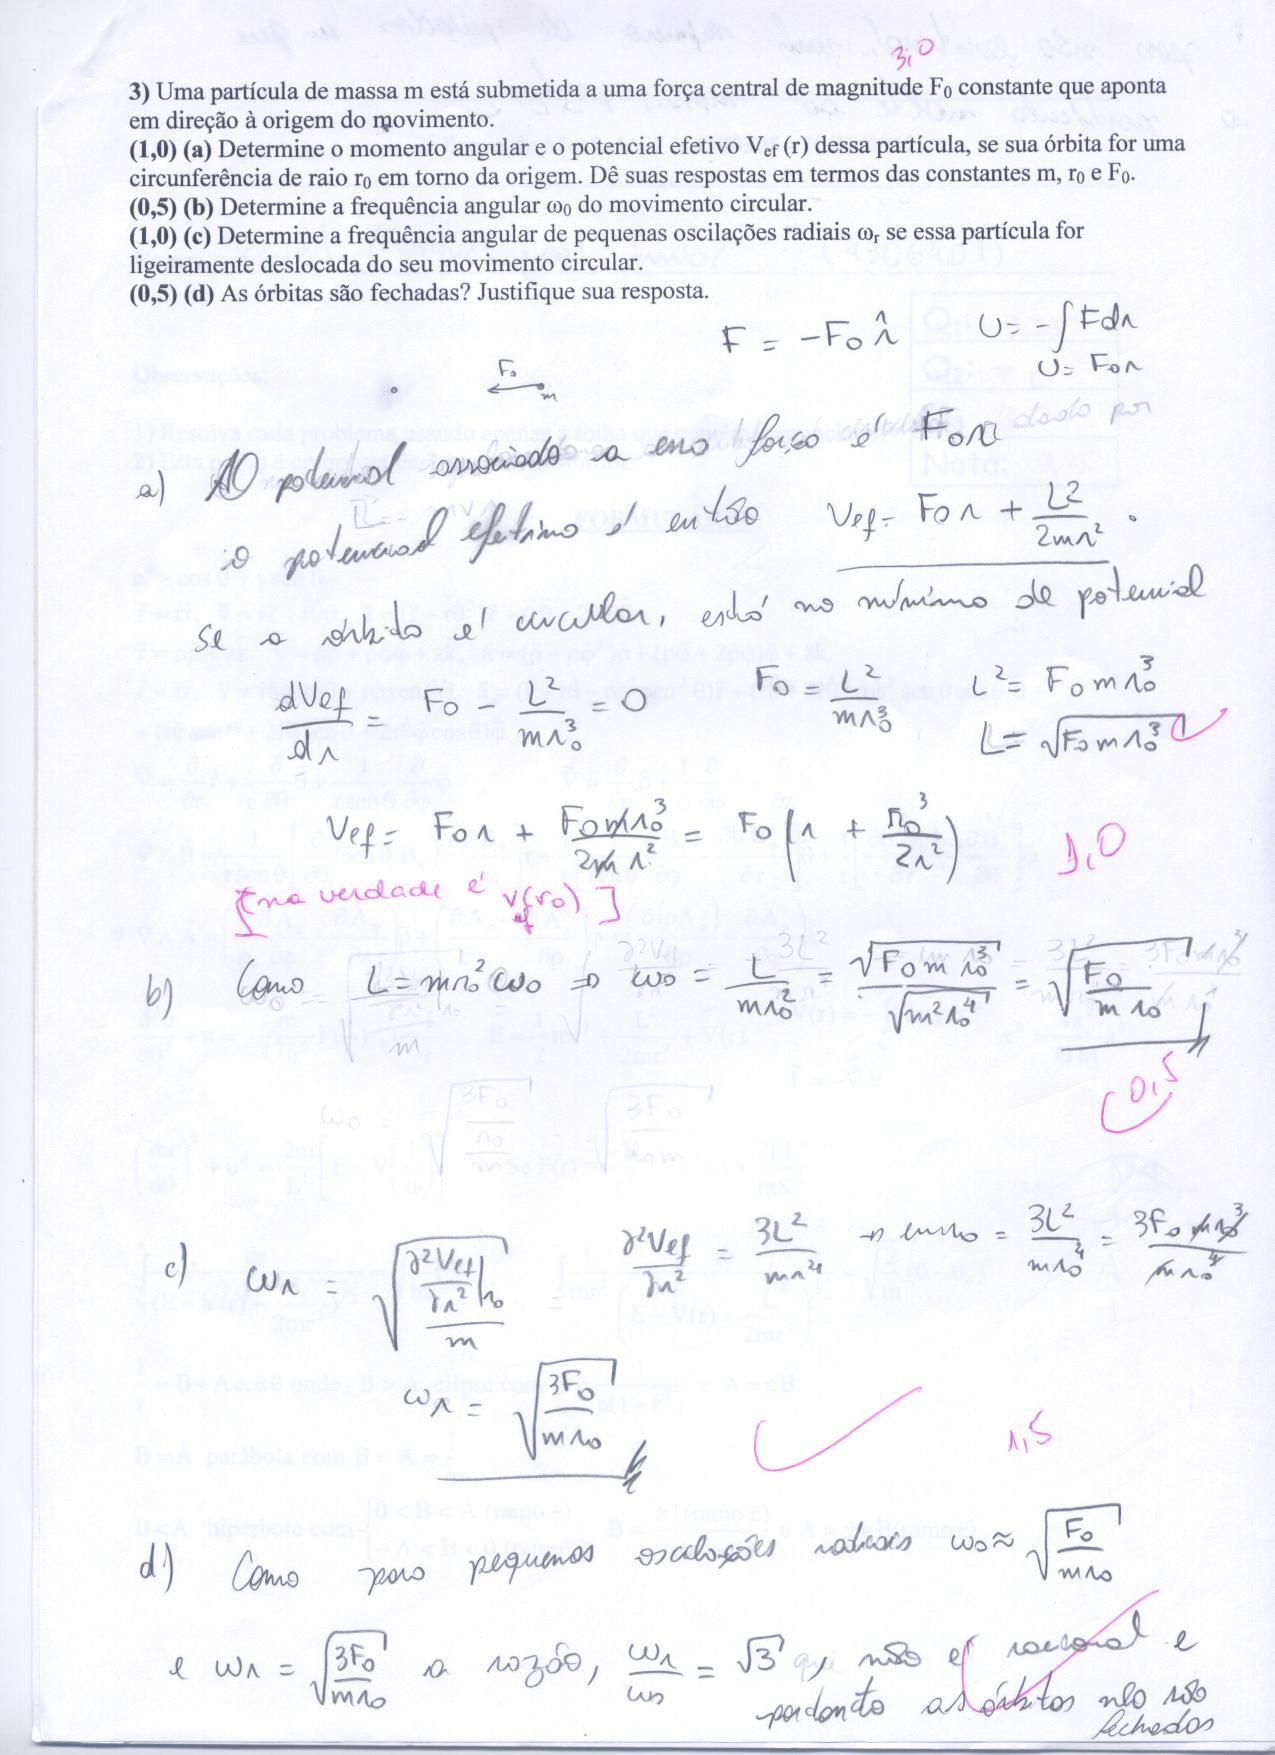 3,0
3) Uma partícula de massa m está submetida a uma força central de magnitude F₀ constante que aponta
em direção à origem do movimento.
(1,0) (a) Determine o momento angular e o potencial efetivo Vef (r) dessa partícula, se sua órbita for uma
circunferência de raio r₀ em torno da origem. Dê suas respostas em termos das constantes m, r₀ e F₀.
(0,5) (b) Determine a frequência angular ω₀ do movimento circular.
(1,0) (c) Determine a frequência angular de pequenas oscilações radiais ωr se essa partícula for
ligeiramente deslocada do seu movimento circular.
(0,5) (d) As órbitas são fechadas? Justifique sua resposta.
F = -F₀ r̂ U = -∫Fdr
U = F₀r
F₀ m
a) O potencial associado a essa força é F₀r
o potencial efetivo é então Vef = F₀r + L²/2mr².
Se a órbita é circular, está no mínimo de potencial
dVef/dr = F₀ - L²/mr₀³ = 0 F₀ = L²/mr₀³ L² = F₀mr₀³
L = √F₀mr₀³
Vef = F₀r + F₀mr₀³/2mr² = F₀(r + r₀³/2r²) 1,0
[na verdade é Vef(r₀)]
b) Como L = mr₀²ω₀ ⇒ ω₀ = L/mr₀² = √F₀mr₀³/√m²r₀⁴ = √F₀/mr₀
0,5
c) ωr = √∂²Vef/∂r²|r₀/m ∂²Vef/∂r² = 3L²/mr⁴ → em r₀ = 3L²/mr₀⁴ = 3F₀mr₀³/mr₀⁴
ωr = √3F₀/mr₀
1,5
d) Como para pequenas oscilações radiais ω₀ ≈ √F₀/mr₀
e ωr = √3F₀/mr₀ a razão, ωr/ω₀ = √3, não é racional e
portanto as órbitas não são
fechadas